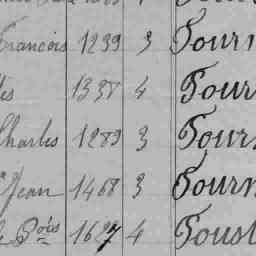 François 1239 3 Tourn
1338 4 Tour
Charles 1289 3 Tourn
Jean 1468 3 Tourn
1627 4 Toust